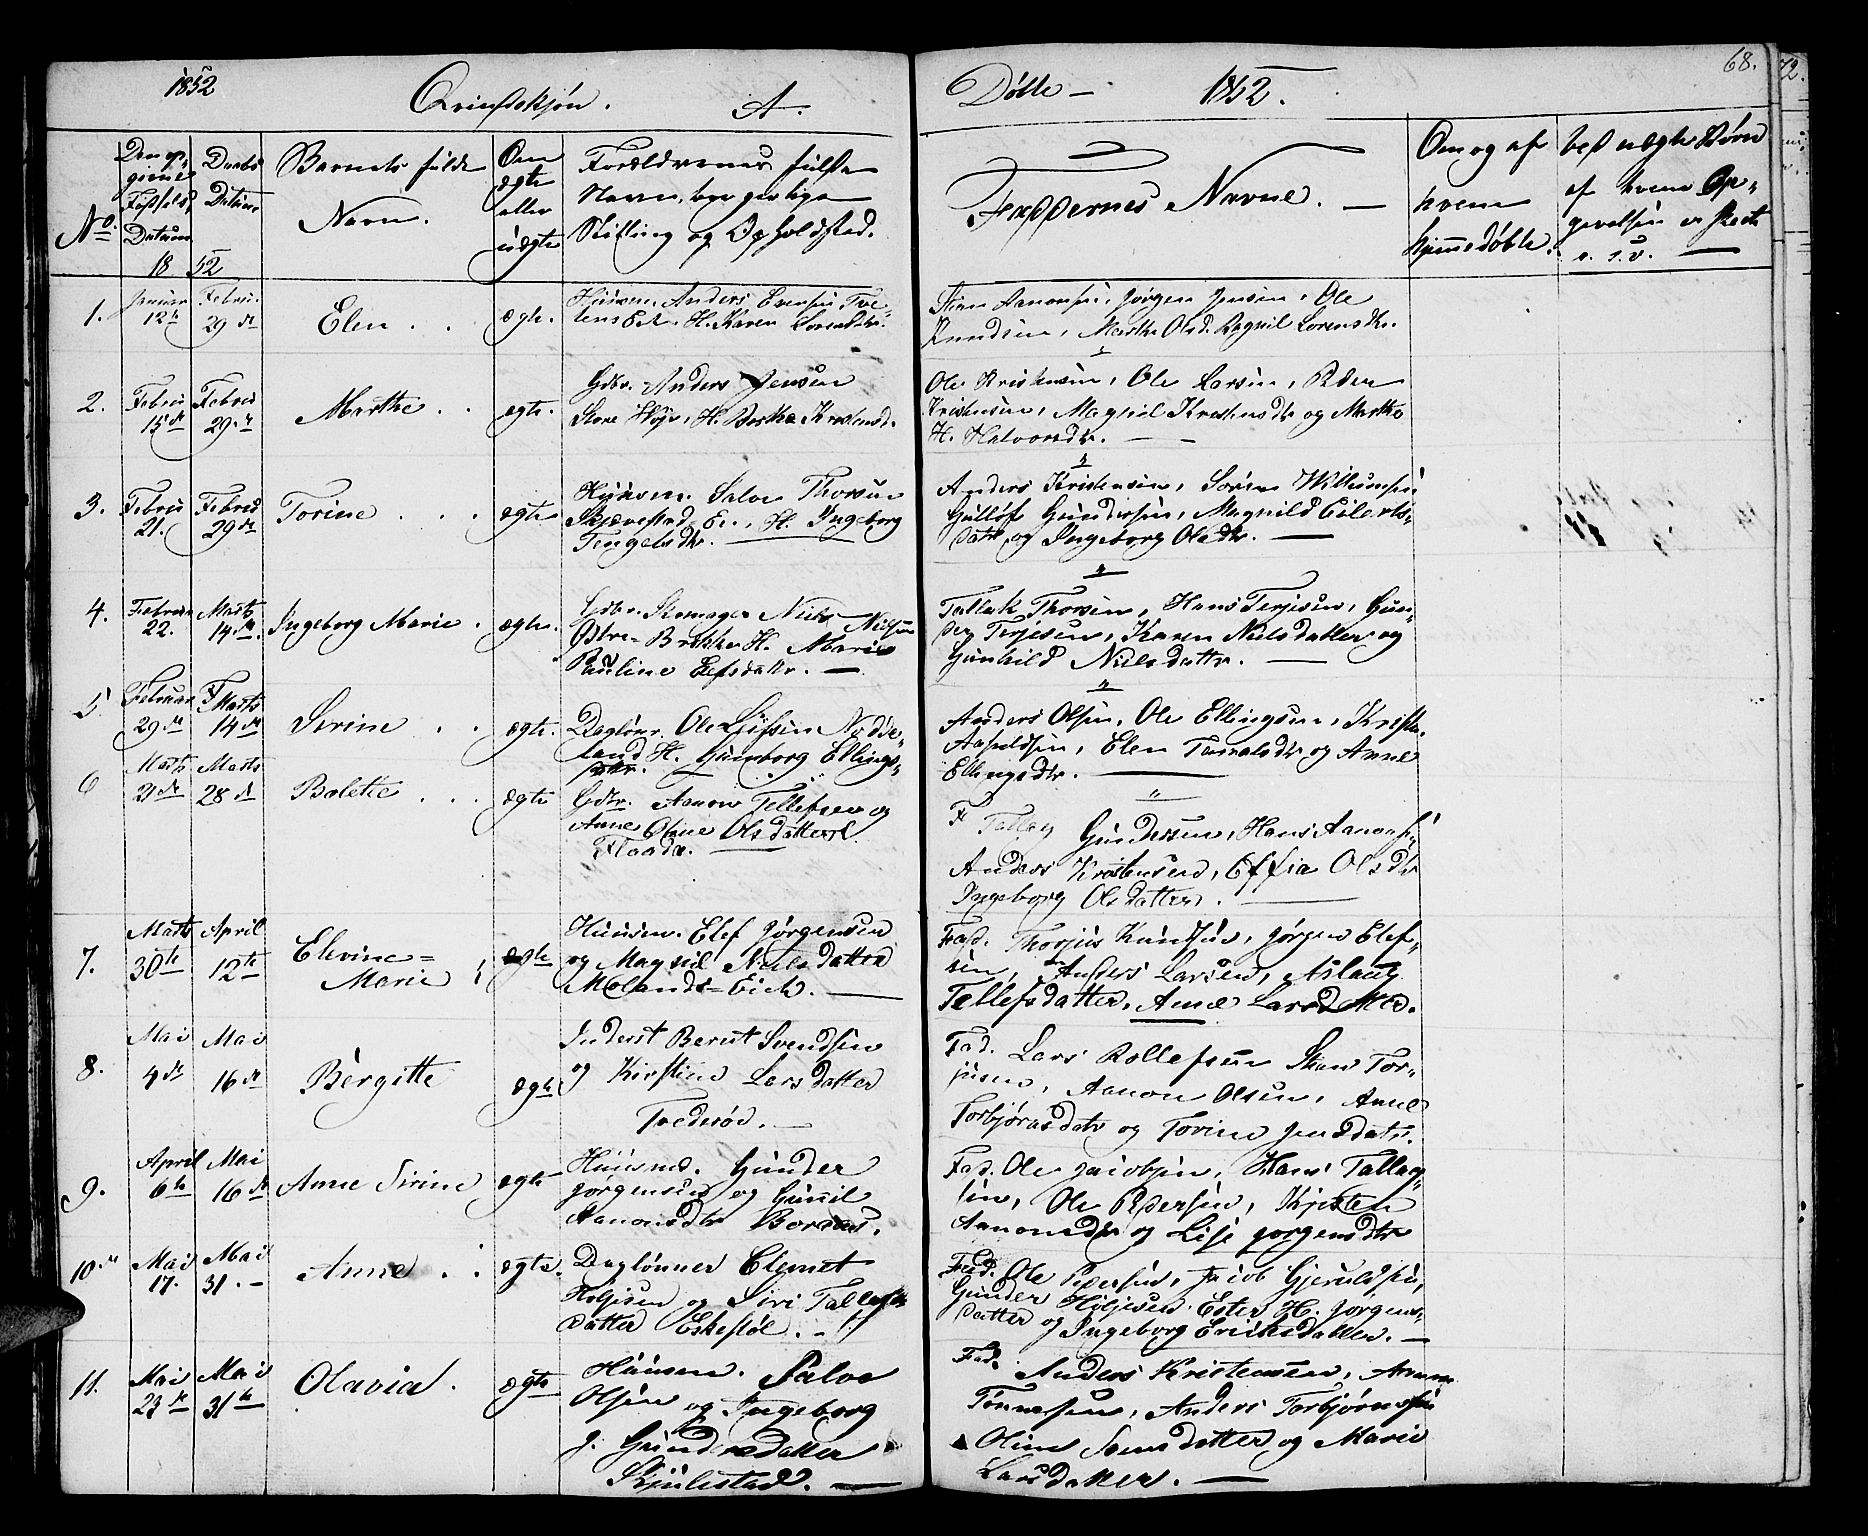 1852 Qvindekjøn. A. Døbte — 1852. 68.
No. Den opgivne Fødsels Datum Daabs Datum Barnets fulde Navn. Om ægte eller uægte Forældrenes fulde Navn, borgerlige Stilling og Opholdsted. Faddernes Navne. — Om og af hvem hjemmedøbte. Ved uægte Børn af hvem Opgivelsen er skeet o. s. v. —
18 52
1. Januar 12te Februar 29de Elen . . ægte. Huusm. Anders Evensen
H. Karen Sorensdtr.
Stian Aanonsen, Jørgen Jensen, Ole
Knudsen, Marthe Olsd. Ragnil Lorensdtr.
2. Februar 15de Februar 29de Marthe . . ægte. Gdbr. Anders Jensen
Store H.
Ole Kristensen, Ole Larsen, Peder
Kristensen, Magnil Kristensdtr og Marthe
H. Halvorsdtr. —
3. Februar 21. Februar 29de Torine . . . ægte Huusm. Salve Thorsen
H. Ingeborg
Tengelsdtr. —
Anders Kristensen, Søren Willumsen
Gulløf Gundersen, Magnild Eilerts-
datr og Ingeborg Olsdtr. —
4. Februar 22. Marts 14de Ingeborg Marie . ægte. Gdbr. Skomager Niels Nielsen
Østre- H. Marie
Pauline Elefsdatter. —
Tallak Thorsen, Hans Terjesen, Gun-
der Terjesen, Karen Nielsdatter og
Gunhild Nielsdattr. —
5 Februar 29de Marts 14de Serine . . ægte. Daglønr. Ole
land H. Gunborg Ellings-
dtr. —
Anders Olsen, Ole Ellingsen,
Elen og Anne
Ellingsdtr. —
6 Marts 2de Marts 28de Boletie . . . ægte Gdbr. Aanon Tellefsen og
Anne Oline Olsdatter
Flaade. —
F Tallag Gundersen, Hans Aanons.
Anders Kristensen, Effia Olsdtr
Ingeborg Olsdatter. —
7. Marts 30te April 12te Elevine=
Marie ægte Huusm. Elef Jørgensen
og Magnil Nielsdatter
Molands=Eie. —
Fad. Thorjus Knudsen, Jørgen Elef-
sen, Anders Larsen, Aslaug
Tellefsdatter, Anne Larsdatter.
8. Mai 4de Mai 16de Bergitte ægte Inderst Bernt Svendsen
og Kirstine Larsdatter
Trederød. —
Fad. Lars Rollefsen Stian Tor-
jusen, Aanon Olsen, Anne
Torbjørnsdatr og Torine Jensdatr.
9. April 6te Mai 16de Anne Sirine ægte Huusmd. Gunder
Jørgensen og Gunil
Aanonsdtr Boraas.
Fad. Ole Jacobsen, Hans Tallag-
sen, Ole Pedersen, Kjesten
Aanonsdtr og Lise Jørgensdtr
10. Mai 17. Mai 31. — Anne . . ægte. Daglønner Clemet
og Siri Tallefs
datter Eskestøl. —
Fad. Ole Pedersen, Jacob Gjeruldsen,
Gunder Ester H. Jørgens-
datter og Ingeborg Eriksdatter. —
11. Mai 23de Mai 31te Olavia . ægte Huusm. Salve
Olsen og Ingeborg
J. Gundersdatter
Skjulestad. —
Fad. Anders Kristensen, Aanon
Tønnesen, Anders Torbjørnsen
Oline Svensdatter og Marie
Larsdatter. —